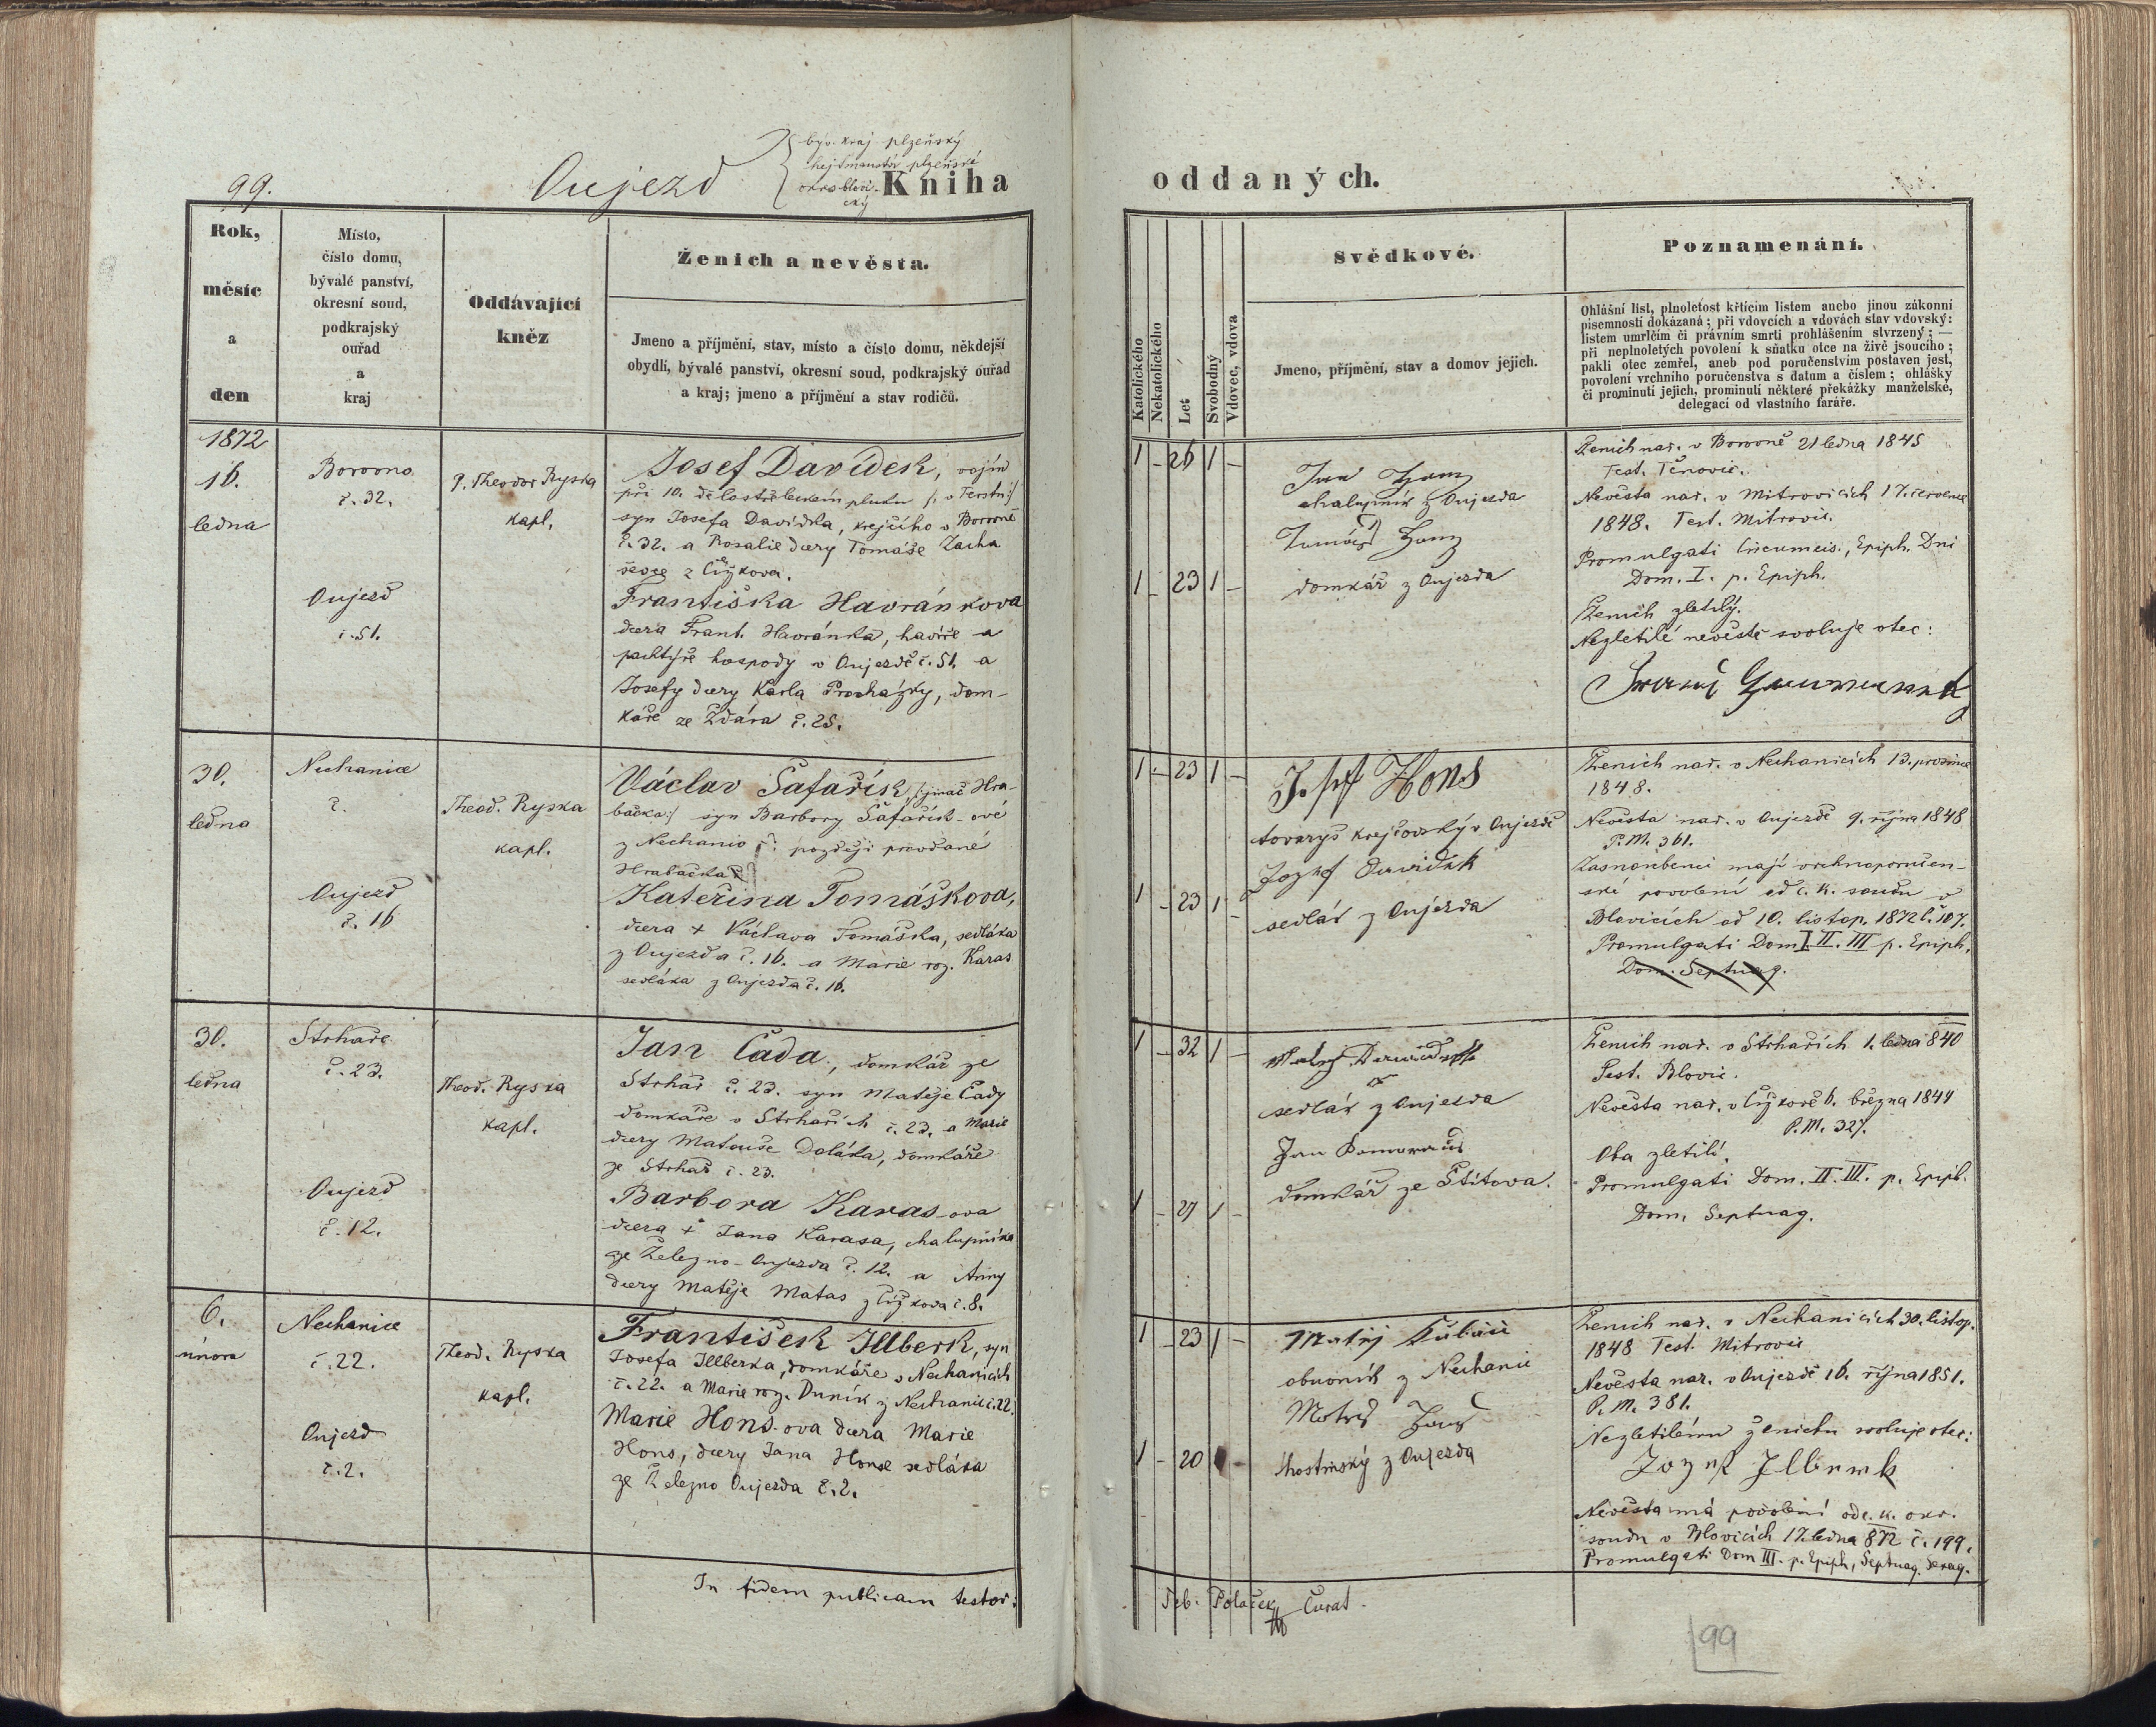 99.
Oujezd
býv. kraj plzeňský
hejtmanství plzeňské
okres blovi-
cký
Kniha
oddaných.
Rok,
měsíc
a
den
Místo,
číslo domu,
bývalé panství,
okresní soud,
podkrajský
ouřad
a
kraj
Oddávající
kněz
Ženich a nevěsta.
Jmeno a příjmění, stav, místo a číslo domu, někdejší
obydlí, bývalé panství, okresní soud, podkrajský ouřad
a kraj; jmeno a příjmění a stav rodičů.
Katolického
Nekatolického
Let
Svobodný
Vdovec, vdova
Svědkové.
Jmeno, příjmění, stav a domov jejich.
Poznamenání.
Ohlášní list, plnoletost křticím listem anebo jinou zákonní
písemností dokázaná; při vdovcích a vdovách stav vdovský:
listem umrlčím či právním smrti prohlášením stvrzený; —
při neplnoletých povolení k sňatku otce na živě jsoucího;
pakli otec zemřel, aneb pod poručenstvím postaven jest,
povolení vrchního poručenstva s datum a číslem; ohlášky
či prominutí jejich, prominutí některé překážky manželské,
delegací od vlastního faráře.
1872
16.
ledna
Borovno
č. 32.
Oujezd
č. 51.
P. Theodor Ryska
kapl.
Josef Davídek, vojín
při 10. dělostřeleckém pluku
syn Josefa Davídka, krejčího v Borovně
č. 32. a Rosalie dcery Tomáše Zacha
ševce z Čížkova.
Františka Havránkova
dcera Frant. Havránka, havíře a
pachtýře hospody v Oujezdě č. 51. a
Josefy dcery Karla Procházky, dom-
káře ze Ždára č. 25.
1 - 26 1 -
1 - 23 1 -
Jan
chalupník z Oujezda
Tomáš
domkář z Oujezda
Ženich nar. v Borovně 21 ledna 1845
Test. Těnovic.
Nevěsta nar. v Mitrovicích 17. července
1848. Test. Mitrovic.
Promulgati Circumcis., Epiph. Dni
Dom. I. p. Epiph.
Ženich zletilý.
Nezletilé nevěstě svoluje otec:
30.
ledna
Nechanice
č.
Oujezd
č. 16
Theod. Ryska
kapl.
Václav Šafařík /:jinač Hra-
bačka:/ syn Barbory Šafařík-ové
z Nechanic později provdané
Hrabačka
Kateřina Tomáškova,
dcera + Václava Tomáška, sedláka
z Oujezda č. 16. a Marie roz. Karas
sedláka z Oujezda č. 16.
1 - 23 1 -
1 - 23 1 -
Josef Hons
tovaryš krejčovský v Oujezdě
Jozef Dawidek
sedlák z Oujezda
Ženich nar. v Nechanicích 13. prosince
1848.
Nevěsta nar. v Oujezdě 9. října 1848
P. M. 361.
Zasnoubenci mají vrchnoporučen-
ské povolení od c. k. soudu v
Blovicích od 10. listop. 1872 č. 107.
Promulgati Dom I. II. III p. Epiph.
Dom. Septuag.
30.
ledna
Strhaře
č. 23.
Oujezd
č. 12.
Theod. Ryska
kapl.
Jan Čada, domkář ze
Strhař č. 23. syn Matěje Čady
domkáře v Strhařích č. 23. a Marie
dcery Matouše Doláka, domkáře
ze Strhař č. 23.
Barbora Karas-ova
dcera + Jana Karasa, chalupníka
ze Železno-Oujezda č. 12. a Anny
dcery Matěje Matas z Čížkova č. 8.
1 - 32 1 -
1 - 27 1 -
sedlák z Oujezda
Jan
domkář ze Štítova.
Ženich nar. v Strhařích 1. ledna 840
Test. Blovic.
Nevěsta nar. v Čížkově 6. března 1844
P. M. 327.
Oba zletilí.
Promulgati Dom. II. III. p. Epiph.
Dom. Septuag.
6.
února
Nechanice
č. 22.
Oujezd
č. 2.
Theod. Ryska
kapl.
František Illberk, syn
Josefa Illberka, domkáře v Nechanicích
č. 22. a Marie roz. Duník z Nechanic č. 22.
Marie Hons-ova dcera Marie
Hons, dcery Jana Honse sedláka
ze Železno Oujezda č. 2.
1 - 23 1 -
1 - 20 1 -
Matěj
obuvník z Nechanic
hostinský z Oujezda
Ženich nar. v Nechanicích 30. listop.
1848 Test. Mitrovic
Nevěsta nar. v Oujezdě 16. října 1851.
P. M. 381.
Nezletilému ženichu svoluje otec:
Jozef Ilberk
Nevěsta má povolení od c. k. okr.
soudu v Blovicích 17. ledna 872 č. 199.
Promulgati Dom III. p. Epiph, Septuag. Sexag.
In fidem publicam testor:
Feb. Poláček Curat.
99